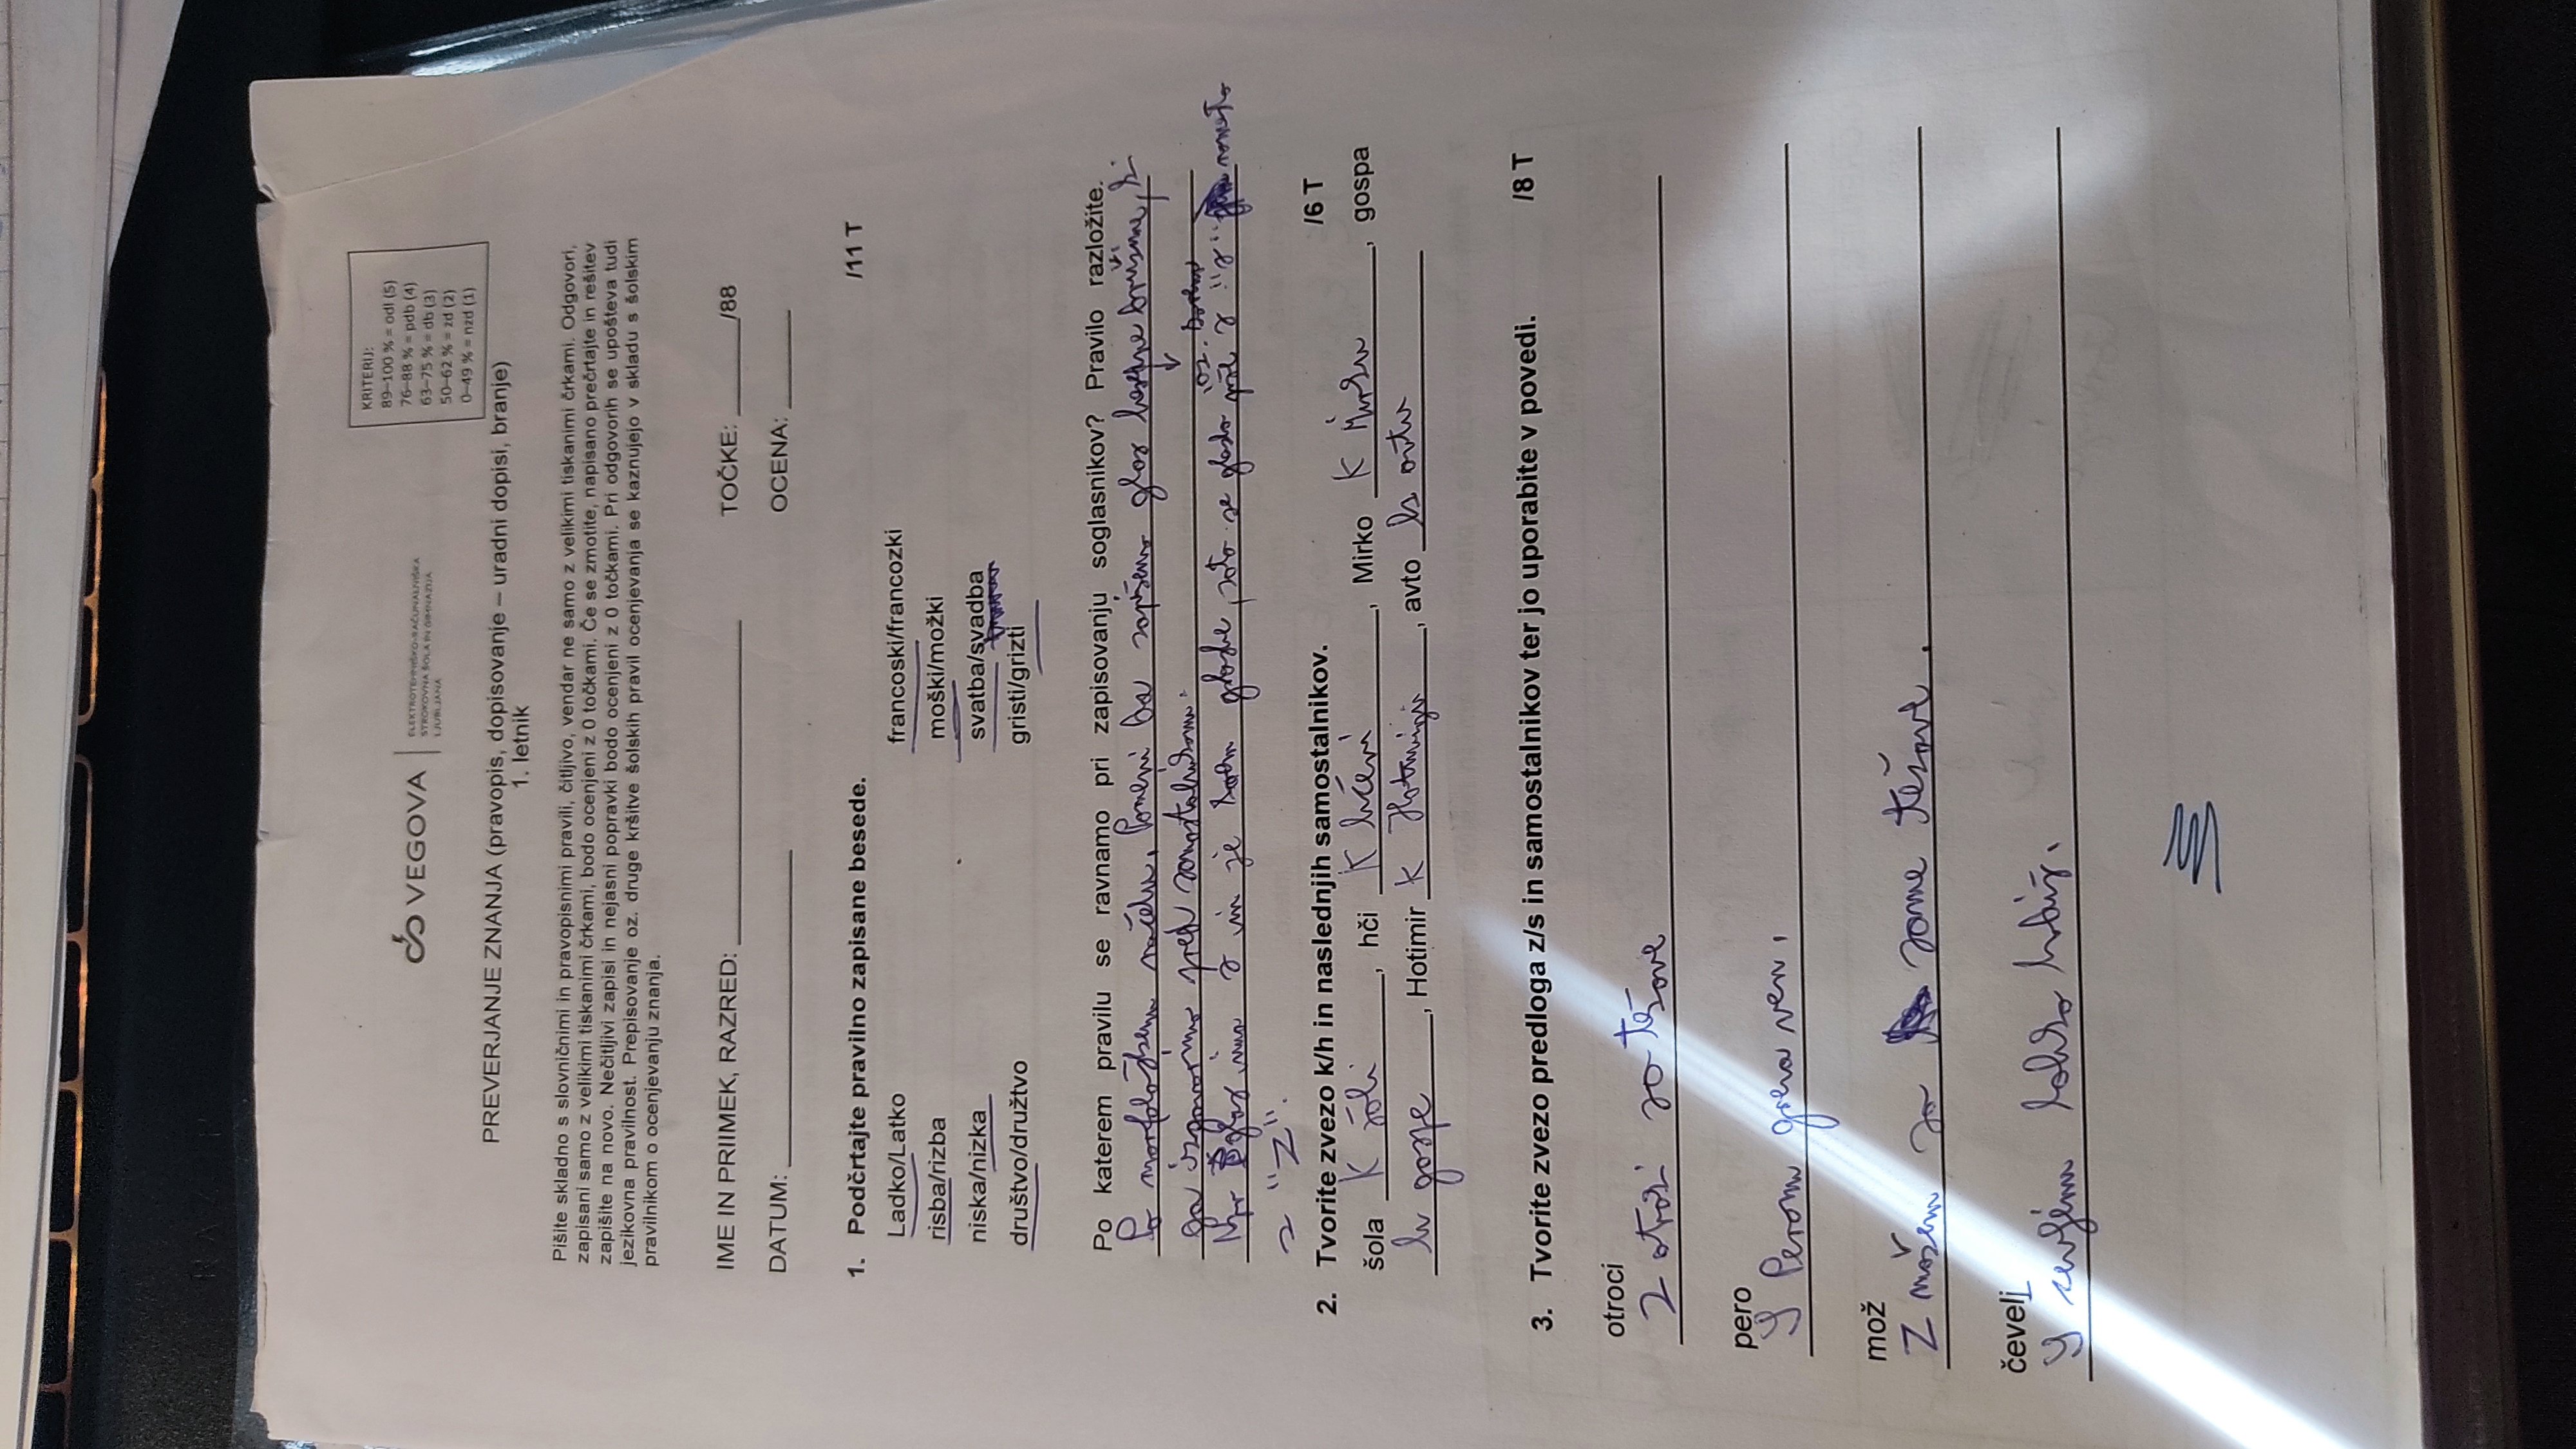 KRITERIJ:
89–100 % = odl (5)
76–88 % = pdb (4)
63–75 % = db (3)
50–62 % = zd (2)
0–49 % = nzd (1)
VEGOVA
ELEKTROTEHNIŠKO-RAČUNALNIŠKA
STROKOVNA ŠOLA IN GIMNAZIJA
LJUBLJANA
PREVERJANJE ZNANJA (pravopis, dopisovanje – uradni dopisi, branje)
1. letnik
Pišite skladno s slovničnimi in pravopisnimi pravili, čitljivo, vendar ne samo z velikimi tiskanimi črkami. Odgovori,
zapisani samo z velikimi tiskanimi črkami, bodo ocenjeni z 0 točkami. Če se zmotite, napisano prečrtajte in rešitev
zapišite na novo. Nečitljivi zapisi in nejasni popravki bodo ocenjeni z 0 točkami. Pri odgovorih se upošteva tudi
jezikovna pravilnost. Prepisovanje oz. druge kršitve šolskih pravil ocenjevanja se kaznujejo v skladu s šolskim
pravilnikom o ocenjevanju znanja.
IME IN PRIIMEK, RAZRED: TOČKE: /88
DATUM: OCENA:
1. Podčrtajte pravilno zapisane besede. /11 T
Ladko/Latko francoski/francozki
risba/rizba moški/možki
niska/nizka svatba/svadba
društvo/družtvo gristi/grizti
Po katerem pravilu se ravnamo pri zapisovanju soglasnikov? Pravilo razložite.
Po morfološkem načelu. Pomeni da zapišemo glas
ga izgovorimo pred samostalnikom.
glas in je zato se "z" namesto
z "Z".
2. Tvorite zvezo k/h in naslednjih samostalnikov. /6 T
šola K šoli, hči K hčeri, Mirko K Mirku, gospa
h gospe, Hotimir k Hotimirju, avto k avtu
3. Tvorite zvezo predloga z/s in samostalnikov ter jo uporabite v povedi. /8 T
otroci
Z so težave
pero
S Perom greva ven.
mož
Z možem so same težave.
čevelj
S lahko hodiš.